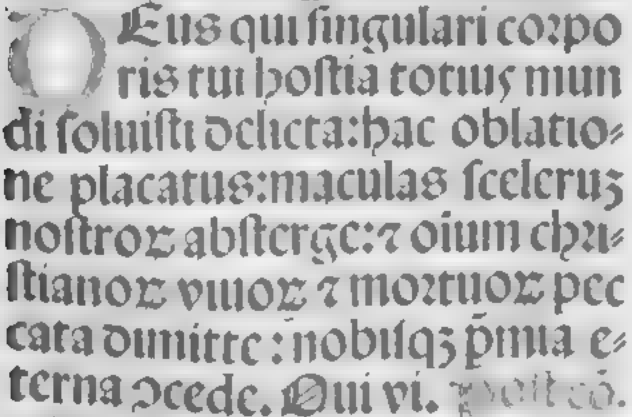 DEus qui singulari corpo
ris tui hostia totius mun
di soluisti delicta: hac oblatio⸗
ne placatus: maculas sceleruꝫ
nostroꝝ absterge: ⁊ oium chri⸗
stianoꝝ viuoꝝ ⁊ mortuoꝝ pec
cata dimitte: nobisqꝫ p̄mia e⸗
terna ↄcede. Qui vi.